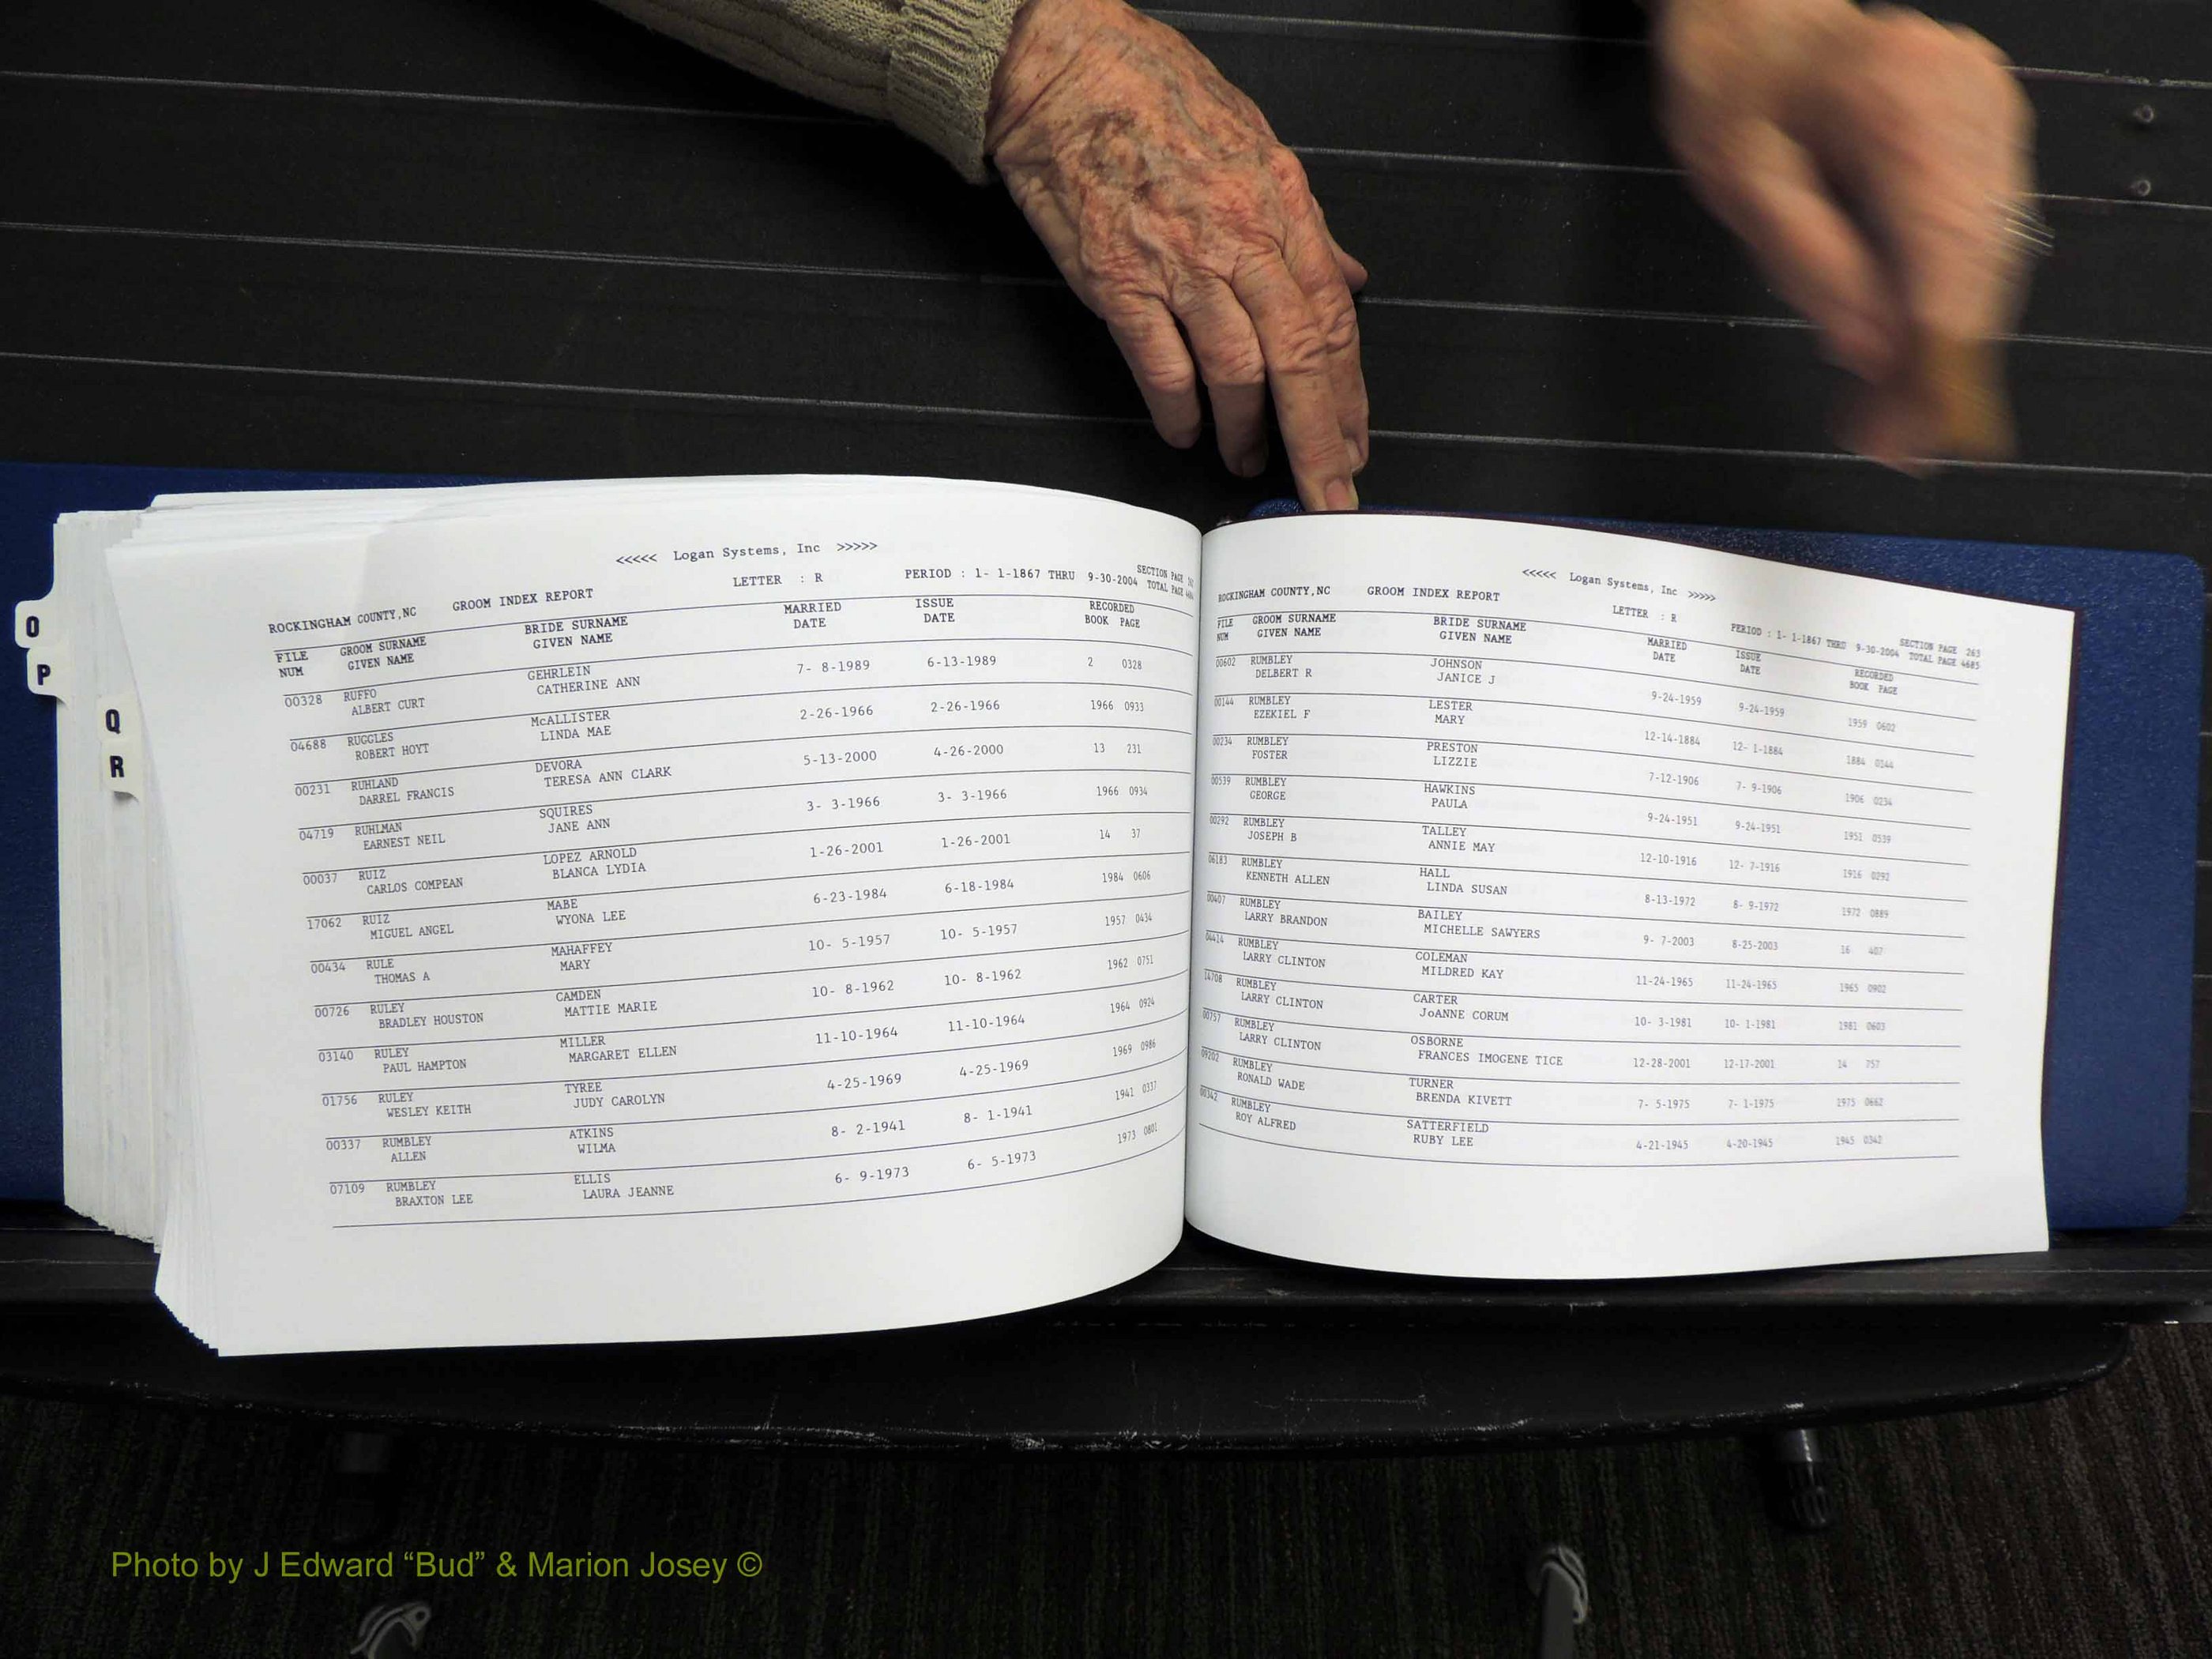 <<<<< Logan Systems, Inc >>>>>
ROCKINGHAM COUNTY,NC GROOM INDEX REPORT LETTER : R PERIOD : 1- 1-1867 THRU 9-30-2004 SECTION PAGE
TOTAL PAGE
FILE GROOM SURNAME BRIDE SURNAME MARRIED ISSUE RECORDED
NUM GIVEN NAME GIVEN NAME DATE DATE BOOK PAGE
00328 RUFFO GEHRLEIN 7- 8-1989 6-13-1989 2 0328
ALBERT CURT CATHERINE ANN
04688 RUGGLES McALLISTER 2-26-1966 2-26-1966 1966 0933
ROBERT HOYT LINDA MAE
00231 RUHLAND DEVORA 5-13-2000 4-26-2000 13 231
DARREL FRANCIS TERESA ANN CLARK
04719 RUHLMAN SQUIRES 3- 3-1966 3- 3-1966 1966 0934
EARNEST NEIL JANE ANN
00037 RUIZ LOPEZ ARNOLD 1-26-2001 1-26-2001 14 37
CARLOS COMPEAN BLANCA LYDIA
17062 RUIZ MABE 6-23-1984 6-18-1984 1984 0606
MIGUEL ANGEL WYONA LEE
00434 RULE MAHAFFEY 10- 5-1957 10- 5-1957 1957 0434
THOMAS A MARY
00726 RULEY CAMDEN 10- 8-1962 10- 8-1962 1962 0751
BRADLEY HOUSTON MATTIE MARIE
03140 RULEY MILLER 11-10-1964 11-10-1964 1964 0924
PAUL HAMPTON MARGARET ELLEN
01756 RULEY TYREE 4-25-1969 4-25-1969 1969 0986
WESLEY KEITH JUDY CAROLYN
00337 RUMBLEY ATKINS 8- 2-1941 8- 1-1941 1941 0337
ALLEN WILMA
07109 RUMBLEY ELLIS 6- 9-1973 6- 5-1973 1973 0801
BRAXTON LEE LAURA JEANNE
<<<<< Logan Systems, Inc >>>>>
ROCKINGHAM COUNTY,NC GROOM INDEX REPORT LETTER : R PERIOD : 1- 1-1867 THRU 9-30-2004 SECTION PAGE 263
TOTAL PAGE 4685
FILE GROOM SURNAME BRIDE SURNAME MARRIED ISSUE RECORDED
NUM GIVEN NAME GIVEN NAME DATE DATE BOOK PAGE
00602 RUMBLEY JOHNSON 9-24-1959 9-24-1959 1959 0602
DELBERT R JANICE J
00144 RUMBLEY LESTER 12-14-1884 12- 1-1884 1884 0144
EZEKIEL F MARY
00234 RUMBLEY PRESTON 7-12-1906 7- 9-1906 1906 0234
FOSTER LIZZIE
00539 RUMBLEY HAWKINS 9-24-1951 9-24-1951 1951 0539
GEORGE PAULA
00292 RUMBLEY TALLEY 12-10-1916 12- 7-1916 1916 0292
JOSEPH B ANNIE MAY
06183 RUMBLEY HALL 8-13-1972 8- 9-1972 1972 0889
KENNETH ALLEN LINDA SUSAN
00407 RUMBLEY BAILEY 9- 7-2003 8-25-2003 16 407
LARRY BRANDON MICHELLE SAWYERS
04414 RUMBLEY COLEMAN 11-24-1965 11-24-1965 1965 0902
LARRY CLINTON MILDRED KAY
14708 RUMBLEY CARTER 10- 3-1981 10- 1-1981 1981 0603
LARRY CLINTON JoANNE CORUM
00757 RUMBLEY OSBORNE 12-28-2001 12-17-2001 14 757
LARRY CLINTON FRANCES IMOGENE TICE
09202 RUMBLEY TURNER 7- 5-1975 7- 1-1975 1975 0662
RONALD WADE BRENDA KIVETT
00342 RUMBLEY SATTERFIELD 4-21-1945 4-20-1945 1945 0342
ROY ALFRED RUBY LEE
O
P
Q
R
Photo by J Edward “Bud” & Marion Josey ©